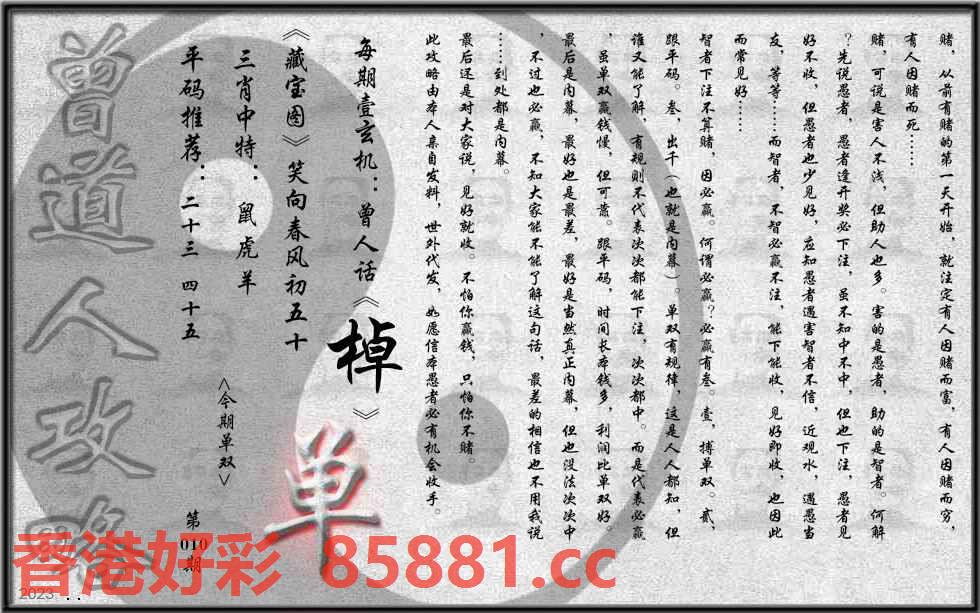 赌，从前有赌的第一天开始，就注定有人因赌而富，有人因赌而穷，
有人因赌而死……
赌，可说是害人不浅，但助人也多。害的是愚者，助的是智者。何解
？先说愚者，愚者逢开奖必下注，虽不知中不中，但也下注，愚者见
好不收，但愚者也少见好，应知愚者遇害智者不信，近观水，遇愚当
友，等等……而智者，不智必赢不注，能下能收，见好即收，也因此
而常见好……
智者下注不算赌，因必赢。何谓必赢？必赢有叁。壹，搏单双。贰，
跟平码。叁，出千（也就是内幕）。单双有规律，这是人人都知，但
谁又能了解，有规则不代表次次都能下注，次次都中。而是代表必赢
，虽单双赢钱慢，但可蓄。跟平码，时间长本钱多，利润比单双好。
最后是内幕，最好也是最差，最好是当然真正内幕，但也没法次次中
，不过也必赢，不知大家能不能了解这句话，最差的相信也不用我说
……到处都是内幕。
最后还是对大家说，见好就收。不怕你赢钱，只怕你不赌。
此攻略由本人亲自发料，世外代发，如愿信本愚者必有机会收手。
每期壹玄机：曾人话《棹》
《藏宝图》笑向春风初五十
三肖中特：鼠虎羊
平码推荐：二十三 四十五
<今期单双>
单
第010期
曾道人攻略
香港好彩 85881.cc
2023